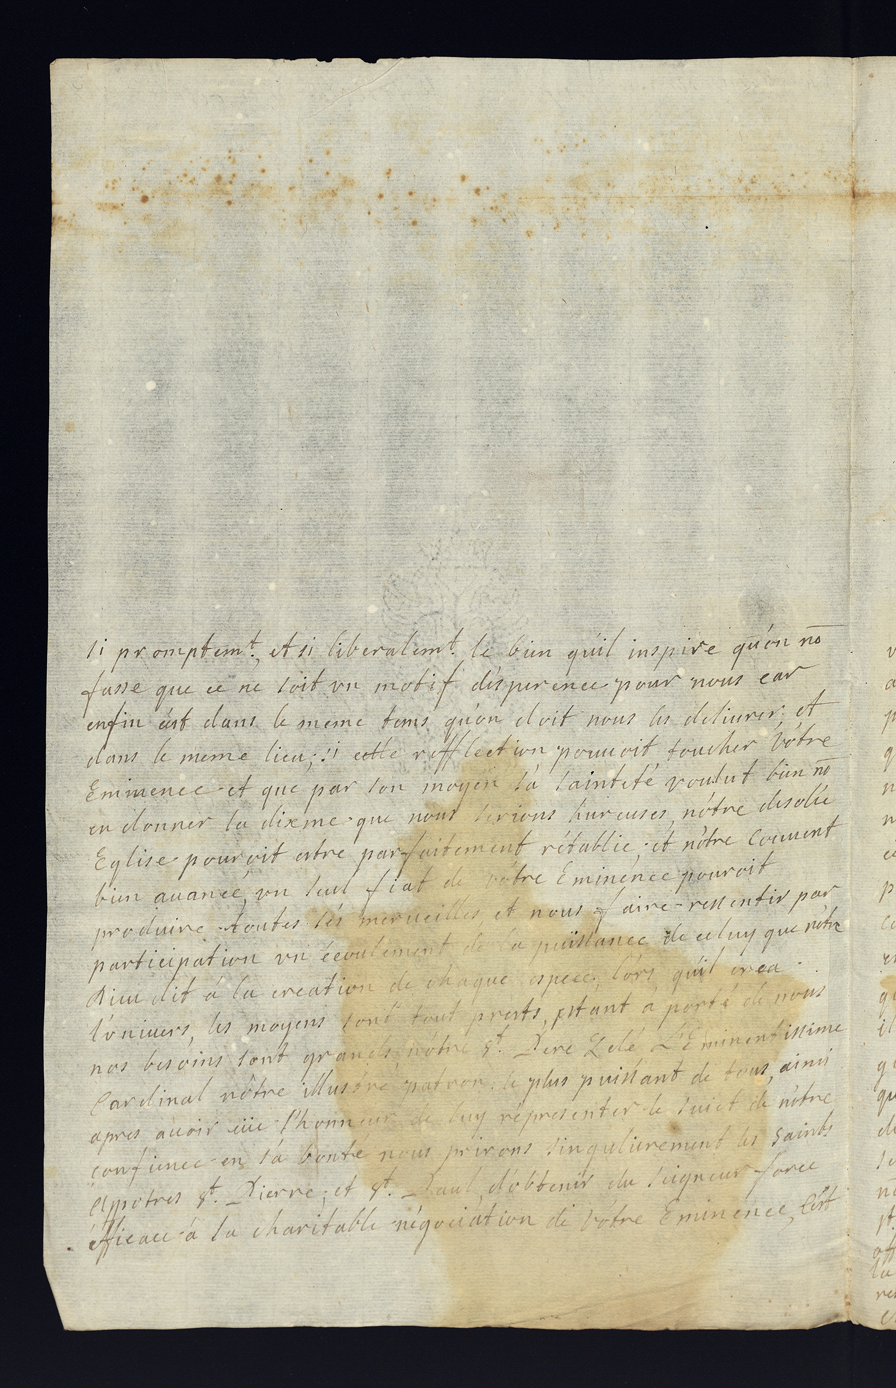 si promptem.t, et si liberalem.t le bien qu'il inspire qu'on nō
fasse que ce ne soit vn motif désperence pour nous car
enfin cést dans le meme tems qu'on doit nous les deliurer; et
dans le meme lieu; si cette rofflection pouuoit toucher Vôtre
Eminence et que par son moyen sa sainteté voulut bien nō
en donner la dixme que nous serions hureuses, nôtre desolée
Eglise pouroit estre parfaitement rétablie et nôtre Couuent
bien auancé, vn seul fiat de vôtre Eminence pouroit
produire toutes ses merueilles, et nous faire ressentir par
participation vn écoulement de la puissance de celuy que nôtre
Dieu dit à la creation de chaque espece, lors qu'il crea
l'vniuers, les moyens sont tout prests, estant a porté de nous
nos besoins sont grands nôtre s.t Pere Zelé L'Eminentissime
Cardinal nôtre illustre patron le plus puissant de tous, ainsi
apres auoir eüe l'honneur de luy representer le suiet de nôtre
confience en sa bonté nous prirons singulierement les saints
Appotres s.t Pierre, et s.t Paul, d'obtenir du seigneur force
éfficace à la charitable négociation de Vôtre Eminence, Cést